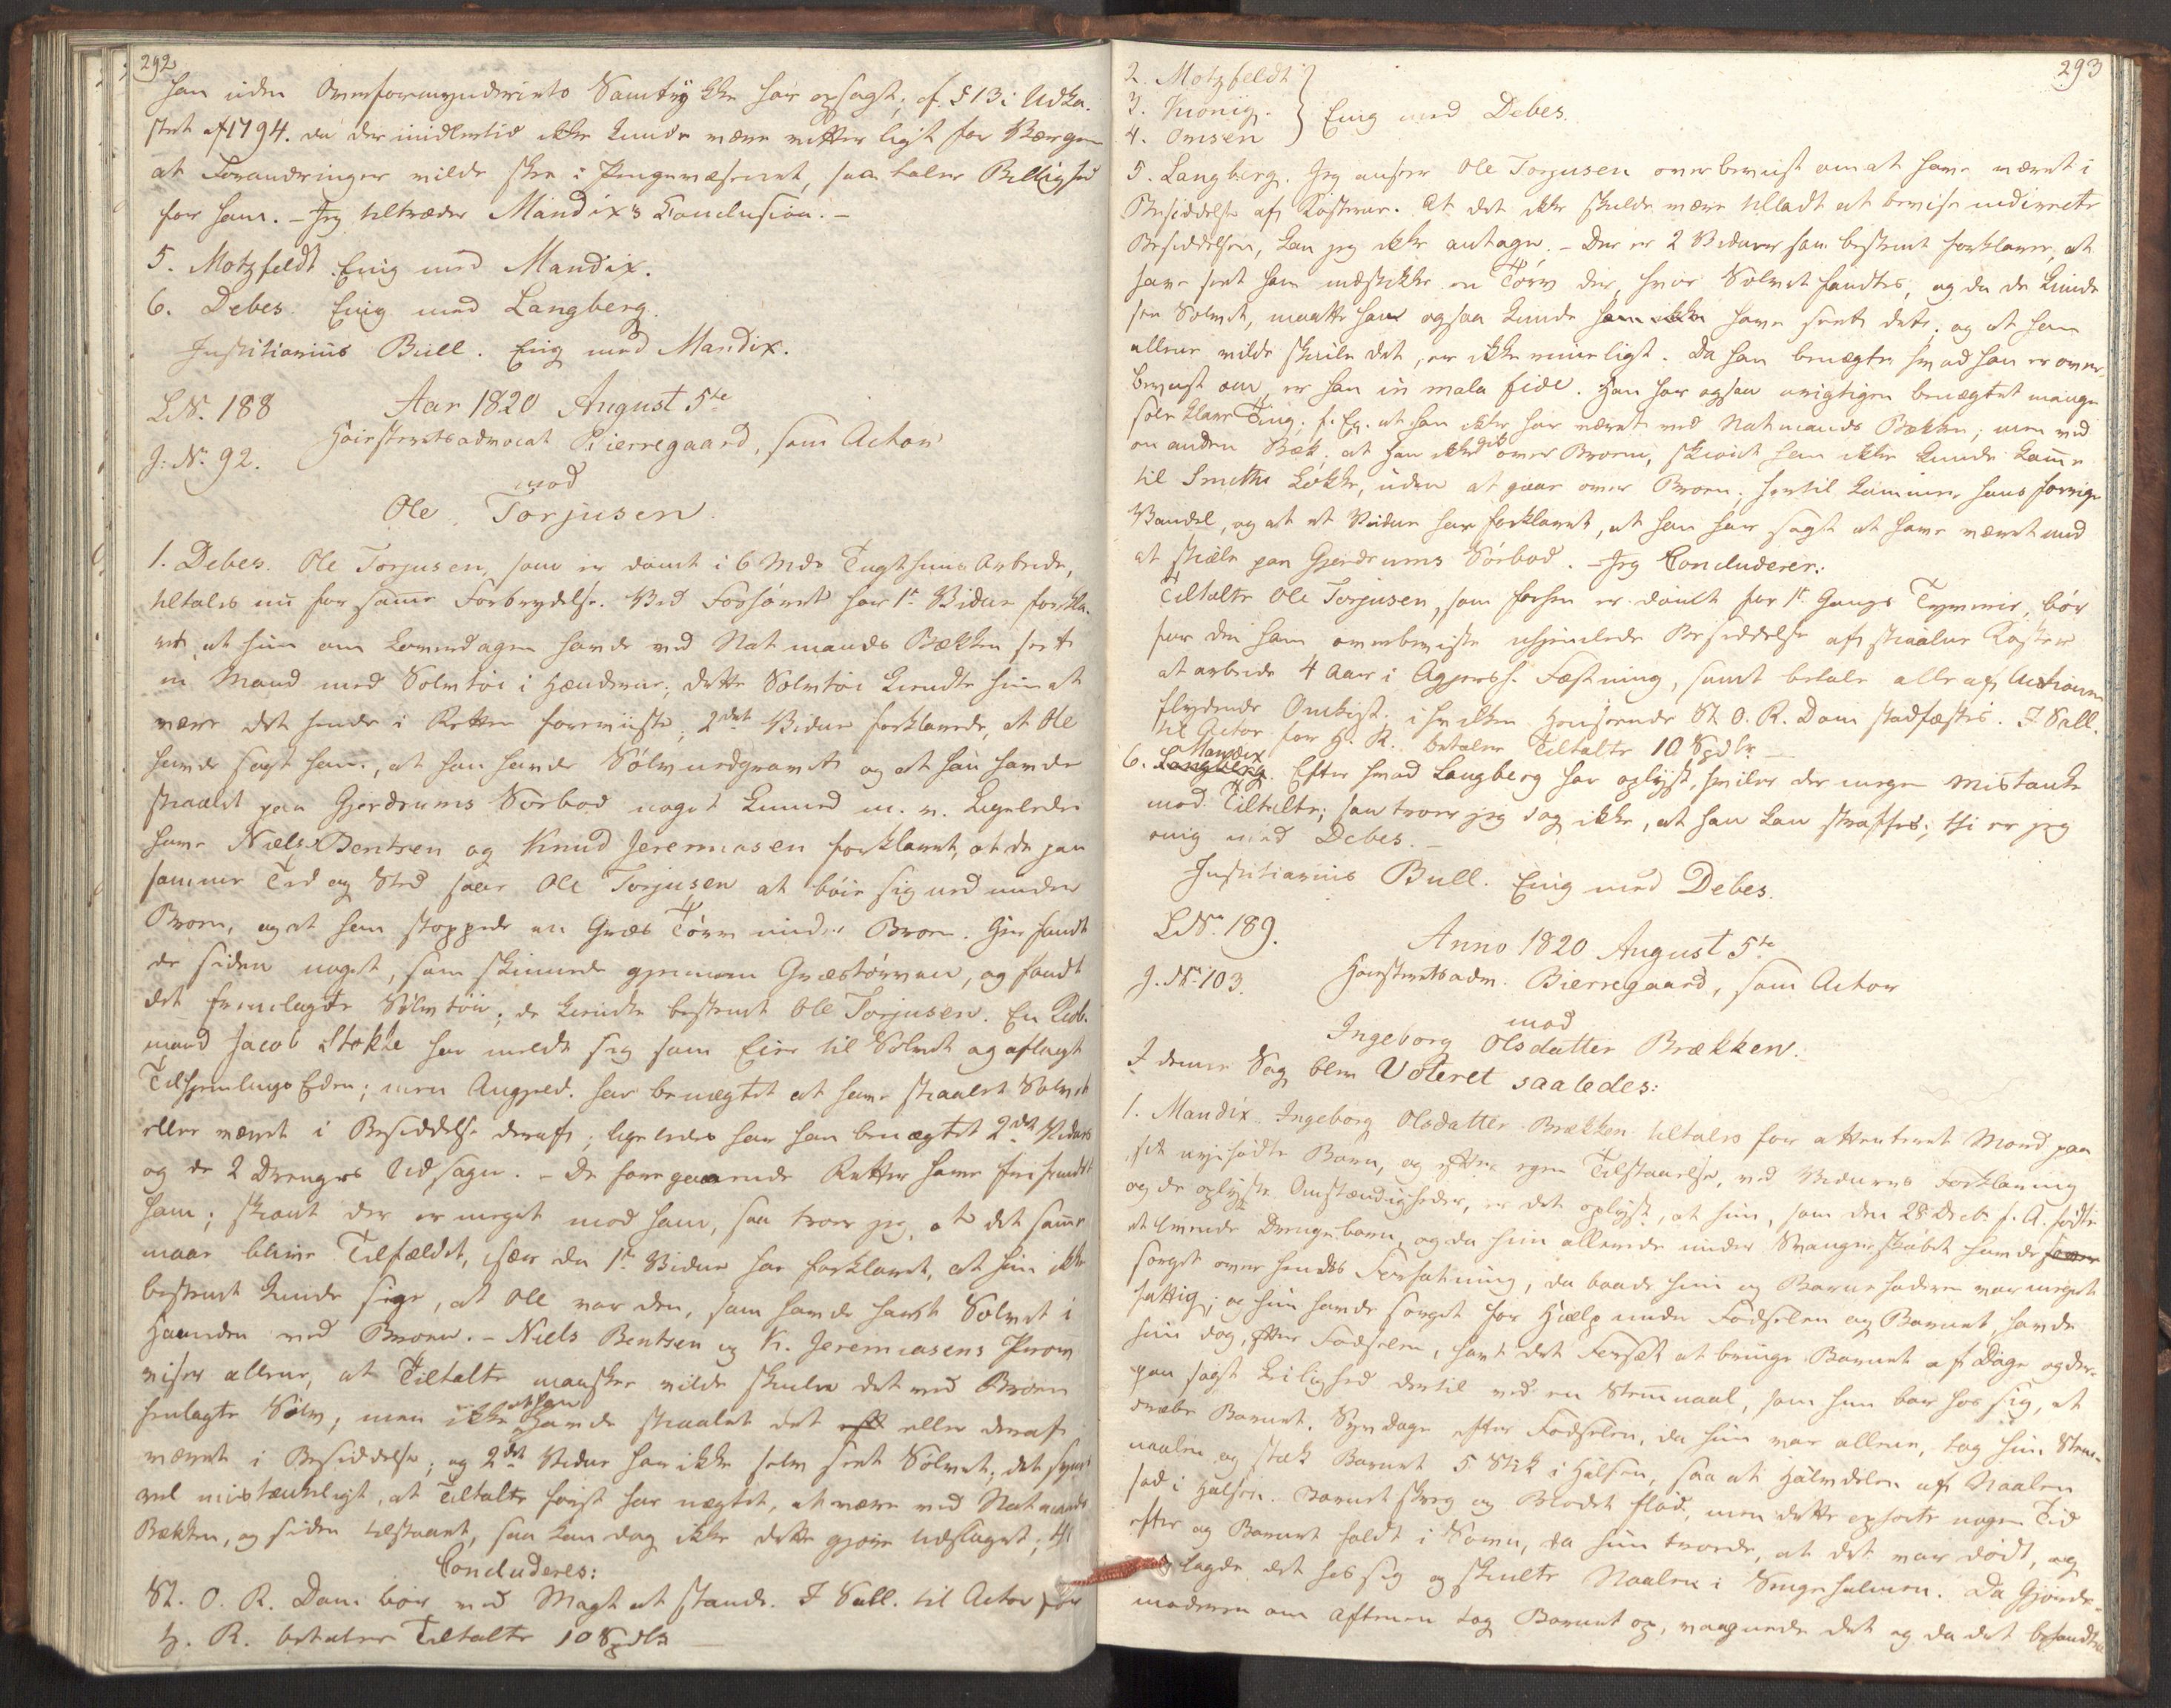 292
han uden Overformynderiets Samtykke har opsagt, cf. § 13 i Udka-
stet af 1794. da der imidlertid ikke kunde være vitterligt for Værgen
at Forandringer vilde skee i Pengevæsenet, saa taler Billighed
for ham. – Jeg tiltræder Mandix's Conclusion. –
5. Motzfeldt. Enig med Mandix.
6. Debes. Enig med Langberg.
Justitiarius Bull. Enig med Mandix.
L.N. 188
Aar 1820 August 5te
J: No. 92.
Høiesteretsadvocat Bierregaard, som Actor
mod
Ole Torjusen.
1. Debes. Ole Torjusen, som er dømt i 6 Mdrs Tugthuus Arbeide,
tiltales nu for samme Forbrydelse. Ved Forhøret har 1te Vidne forkla-
ret, at hun om Løverdagen havde ved Natmands Bækken seet
en Mand med Sølvtøi i Hænderne, dette Sølvtøi kiendte hun at
være det hende i Retten foreviiste, 2det Vidne forklarede, at Ole
havde sagt ham, at han havde Sølv nedgravet og at han havde
stiaalet paa Gjerdrums Søebod noget Linned m. v. Ligeledes
have Niels Bentsen og Knud Jeremiasen forklaret, at de paa
samme Tid og Sted saae Ole Torjusen at bøie sig ned under
Broen, og at han stoppede en Græs Tørv under Broen. Her fandt
de siden noget, som skinnede gjennem Græstørven, og fandt
det fremlagte Sølvtøi; de kiendte bestemt Ole Torjusen. En Kiøb-
mand Jacob Stokke har meldt sig som Eier til Sølvet og aflagt
Tilhjemlings Eden; men Angjeld. har benægtet at have stiaalet Sølvet
eller været i Besiddelse deraf; ligeledes har han benægtet 2det Vidnes
og de 2 Drenges Udsagn. – De foregaaende Retter have frifundet
ham; skiønt der er meget mod ham, saa troer jeg, at det samme
maae blive Tilfældet, især da 1te Vidne har forklaret, at hun ikke
bestemt kunde sige, at Ole var den, som havde havt Sølvet i
Haanden ved Broen. – Niels Bentsen og K. Jeremiasens Prov
viser allene, at Tiltalte maaskee vilde skiule det ved Broen
henlagte Sølv, men ikke at han havde stiaalet det eller deraf
været i Besiddelse; og 2det Vidne har ikke selv seet Sølvet, det synes
vel mistænkeligt, at Tiltalte først har nægtet, at være ved Natmands
Bækken, og siden tilstaaet, saa kan dog ikke dette gjøre Udslaget; thi
Concluderes:
St. O. R. Dom bør ved Magt at stande. I Sall. til Actor for
H. R. betaler Tiltalte 10 Spdlr. –
293
2. Motzfeldt
3. Kiønig.
4. Omsen
Enig med Debes.
5. Langberg. Jeg anseer Ole Torjusen overbeviist om at have været i
Besiddelse af Kosterne. At det ikke skulde være tilladt at bevise indirecte
Besiddelsen, kan jeg ikke antage. – Der er 2 Vidner som bestemt forklarer, at
have seet ham nedstikke en Tørv der, hvor Sølvet fandtes, og da de kunde
see Sølvet, maatte han ogsaa kunde have seet det; og at han
allene vilde skiule det, er ikke rimeligt. Da han benægter hvad han er over-
beviist om, er han in mala fide. Han har ogsaa urigtigen benægtet mange
soleklare Ting, f. Ex. at han ikke har været ved Natmands Bækken, men ved
en anden Bæk; at han ikke gik over Broen, skiønt han ikke kunde komme
til Smiths Løkke, uden at gaae over Broen; hertil kommer hans forrige
Vandel, og at et Vidne har forklaret, at han har sagt at have været med
at stiæle paa Gjerdrums Søebod. – Jeg Concluderer:
Tiltalte Ole Torjusen, som forhen er dømt for 1te Gangs Tyverie, bør
for den ham overbeviste uhjemlede Besiddelse af stiaalne Koster
at arbeide 4 Aar i Aggersh. Fæstning, samt betale alle af Actionen
flydende Omkost. i hvilken Henseende St. O. R. Dom stadfæstes. I Sall.
til Actor for H. R. betaler Tiltalte 10 Spdlr. –
6. Mandix. Efter hvad Langberg har oplyst, hviler der megen Mistanke
mod Tiltalte; saa troer jeg dog ikke, at han kan straffes; thi er jeg
enig med Debes. –
Justitiarius Bull. Enig med Debes.
L.No. 189.
Anno 1820 August 5te
J. No. 103.
Høiesteretsadv. Bierregaard, som Actor
mod
Ingeborg Olsdatter Brækken.
I denne Sag blev Voteret saaledes:
1. Mandix. Ingeborg Olsdatter Brækken tiltales for attenteret Mord paa
sit nyfødte Barn, og efter egen Tilstaaelse, ved Vidners Forklaring
og de oplyste Omstændigheder, er det oplyst, at hun, som den 28 Decbr. f. A. fødte
et levende Drengebarn, og da hun allerede under Svangerskabet havde
sørget over hendes Forfatning, da baade hun og Barnefaderen var meget
fattig; og hun havde sørget for Hjælp under Fødselen og Barnet, havde
hun dog, efter Fødselen, havt det Forsæt at bringe Barnet af Dage og der-
paa søgt Leilighed dertil ved en Stoppenaal, som hun bar hos sig, at
dræbe Barnet. Syv Dage efter Fødselen, da hun var allene, tog hun
naalen og stak Barnet 5 Stik i Halsen, saa at Halvdelen af Naalen
sad i Halsen. Barnet skreg og Blodet flød, men dette ophørte nogen Tid
efter og Barnet faldt i Søvn, da hun troede, at det var dødt, og
lagde det hos sig og skiulte Naalen i Sengehalmen. Da Gjorde-
moderen om Aftenen tog Barnet op, vaagnede det og da det befandtes